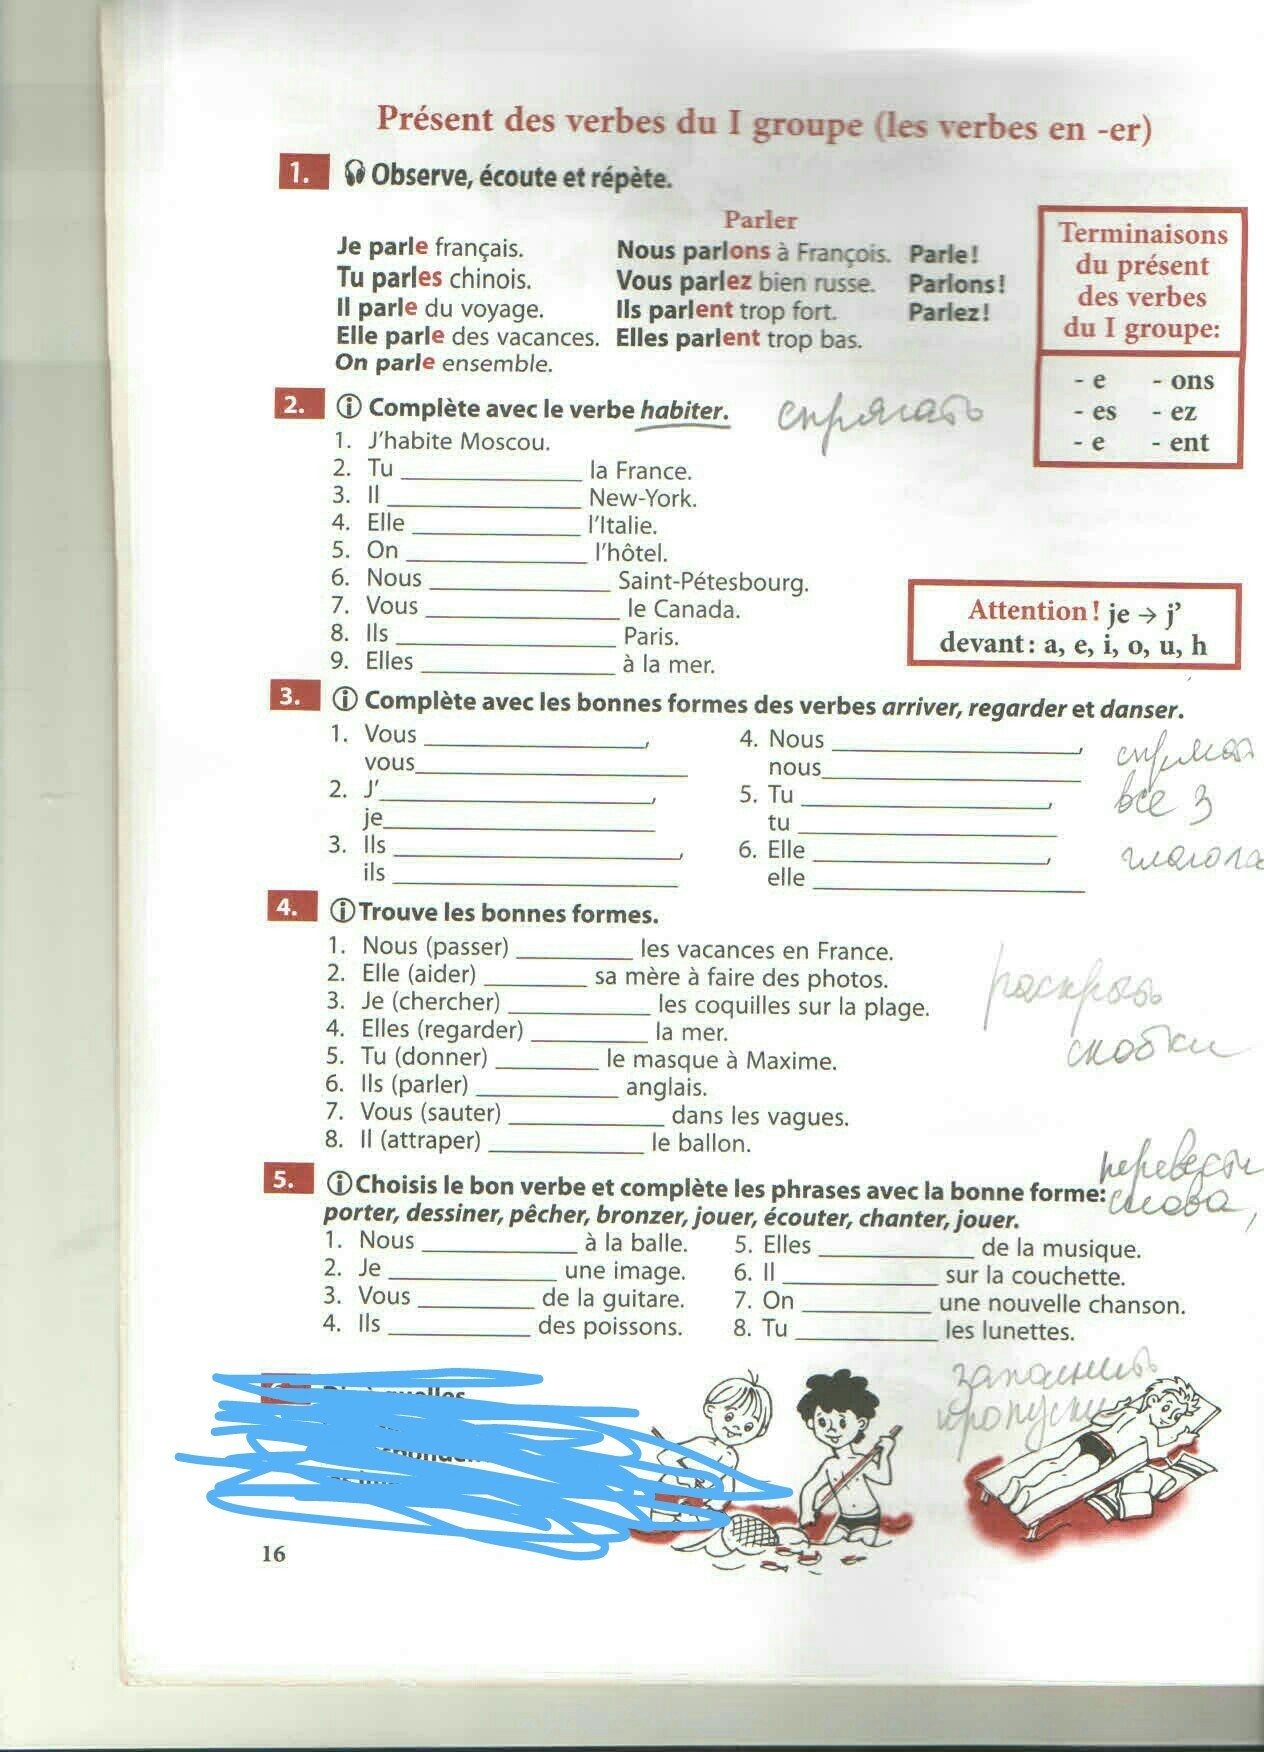 Présent des verbes du I groupe (les verbes en -er)
1. Observe, écoute et répète.
Parler
Je parle français. Nous parlons à François. Parle!
Tu parles chinois. Vous parlez bien russe. Parlons!
Il parle du voyage. Ils parlent trop fort. Parlez!
Elle parle des vacances. Elles parlent trop bas.
On parle ensemble.
Terminaisons
du présent
des verbes
du I groupe:
- e - ons
- es - ez
- e - ent
2. Complète avec le verbe habiter. спрягать
1. J'habite Moscou.
2. Tu ____________ la France.
3. Il ____________ New-York.
4. Elle ____________ l'Italie.
5. On ____________ l'hôtel.
6. Nous ____________ Saint-Pétesbourg.
7. Vous ____________ le Canada.
8. Ils ____________ Paris.
9. Elles ____________ à la mer.
Attention! je → j'
devant: a, e, i, o, u, h
3. Complète avec les bonnes formes des verbes arriver, regarder et danser.
1. Vous ____________,
vous____________
2. J'____________,
je____________
3. Ils ____________,
ils ____________
4. Nous ____________,
nous____________
5. Tu ____________,
tu ____________
6. Elle ____________,
elle ____________
все 3
глагола
4. Trouve les bonnes formes.
1. Nous (passer) ________ les vacances en France.
2. Elle (aider) ________ sa mère à faire des photos.
3. Je (chercher) ________ les coquilles sur la plage.
4. Elles (regarder) ________ la mer.
5. Tu (donner) ________ le masque à Maxime.
6. Ils (parler) ________ anglais.
7. Vous (sauter) ________ dans les vagues.
8. Il (attraper) ________ le ballon.
раскрыть
скобки
5. Choisis le bon verbe et complète les phrases avec la bonne forme:
porter, dessiner, pêcher, bronzer, jouer, écouter, chanter, jouer.
перевести
слова,
1. Nous ________ à la balle.
2. Je ________ une image.
3. Vous ________ de la guitare.
4. Ils ________ des poissons.
5. Elles ________ de la musique.
6. Il ________ sur la couchette.
7. On ________ une nouvelle chanson.
8. Tu ________ les lunettes.
заполнить
пропуски
16